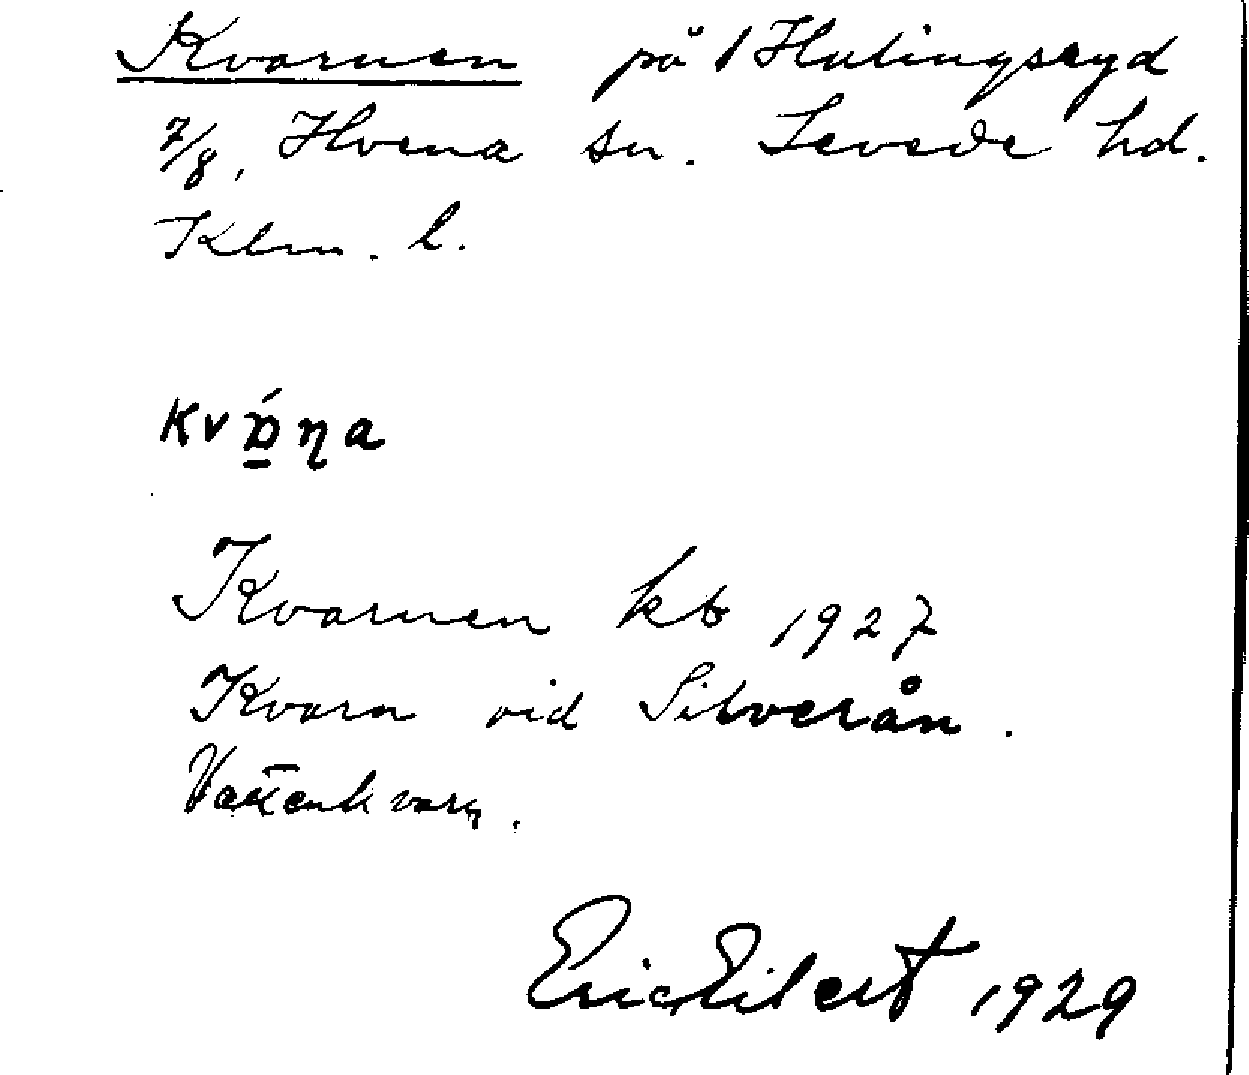 Kvarnen på Hulingsryd
7/8, Hvena sn. Sevede hd.
Klm. l.
Kvarnen kb 1927
Kvarn vid Silverån.
Vattenkvarn.
Eric Eilert 1929